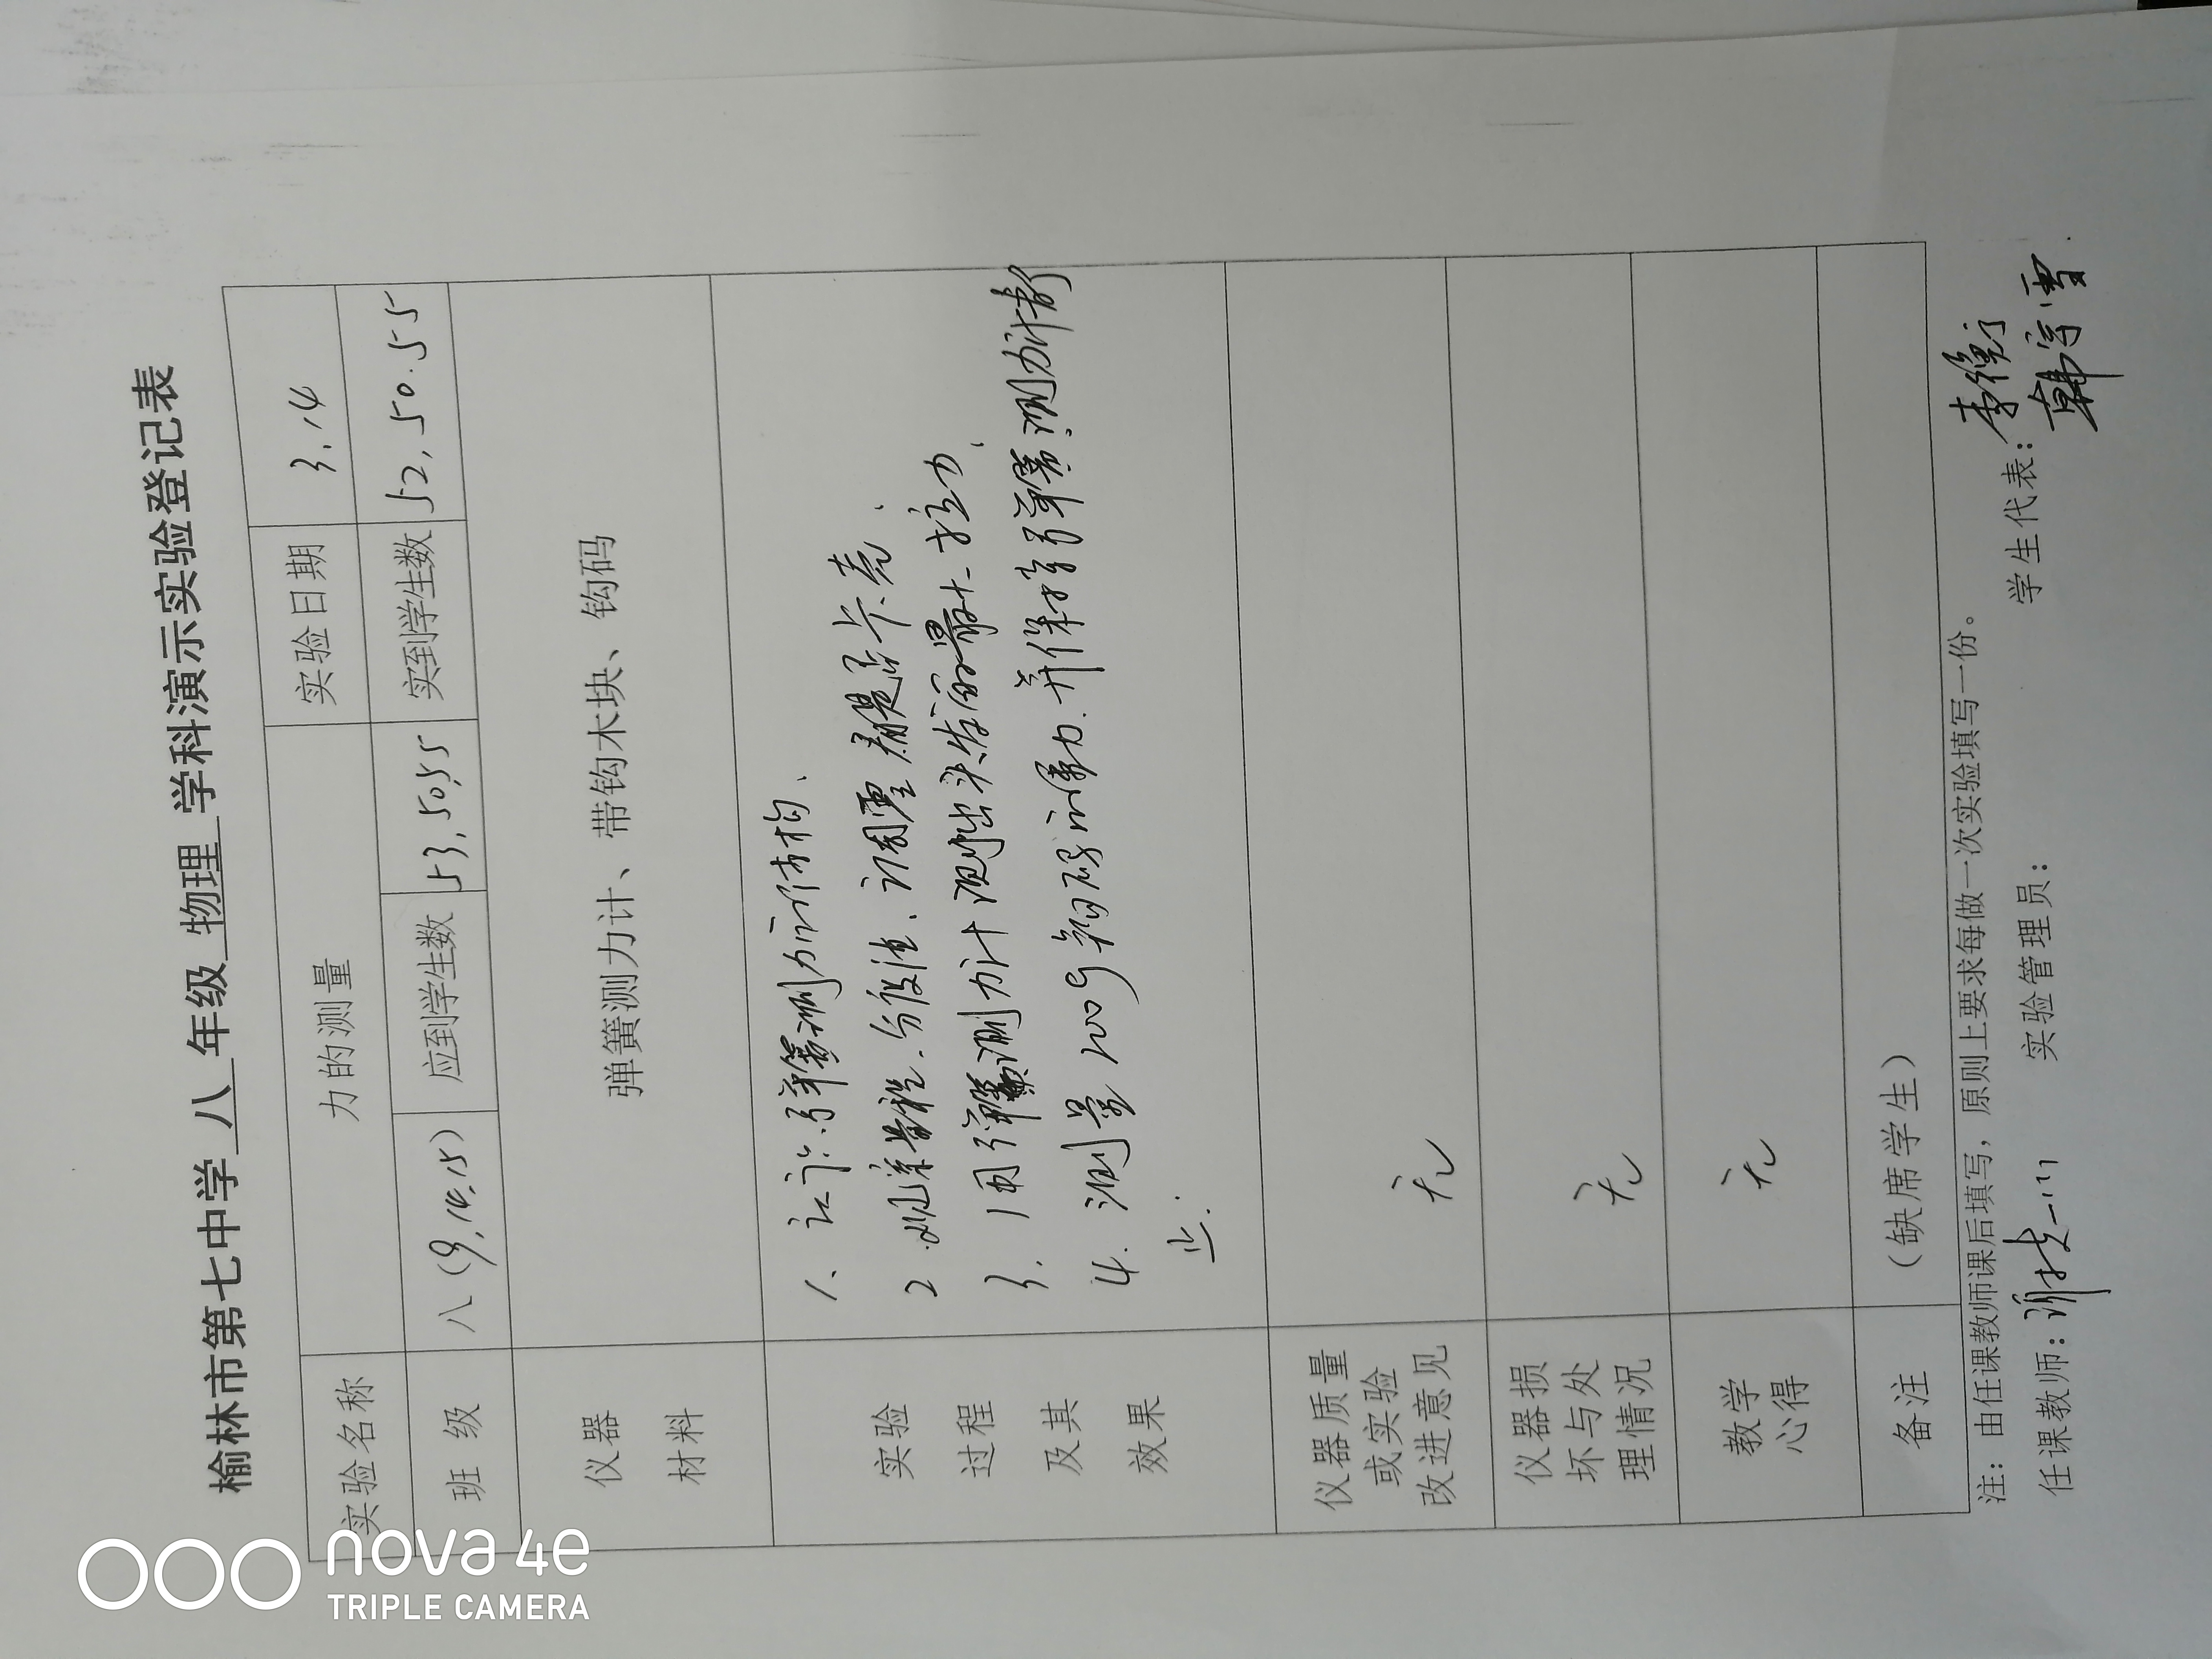 榆林市第七中学 八 年级 物理 学科演示实验登记表
实验名称 力的测量 实验日期 3.14
班 级 八(9,14,15) 应到学生数 53,50,55 实到学生数 52,50.55
仪器
材料
弹簧测力计、带钩木块、钩码
实验
过程
及其
效果
1、认识弹簧测力的结构、
2 观察量程、分度值、调零 是否卡壳、
3、用弹簧测力计测出头发的最大拉力、
4. 测量200g钩码的重力.并保持弹簧测力计静
止.
仪器质量
或实验
改进意见
无
仪器损
坏与处
理情况
无
教学
心得
无
备注 (缺席学生)
注：由任课教师课后填写，原则上要求每做一次实验填写一份。
任课教师： 实验管理员： 学生代表：李
韩雪
nova 4e
TRIPLE CAMERA